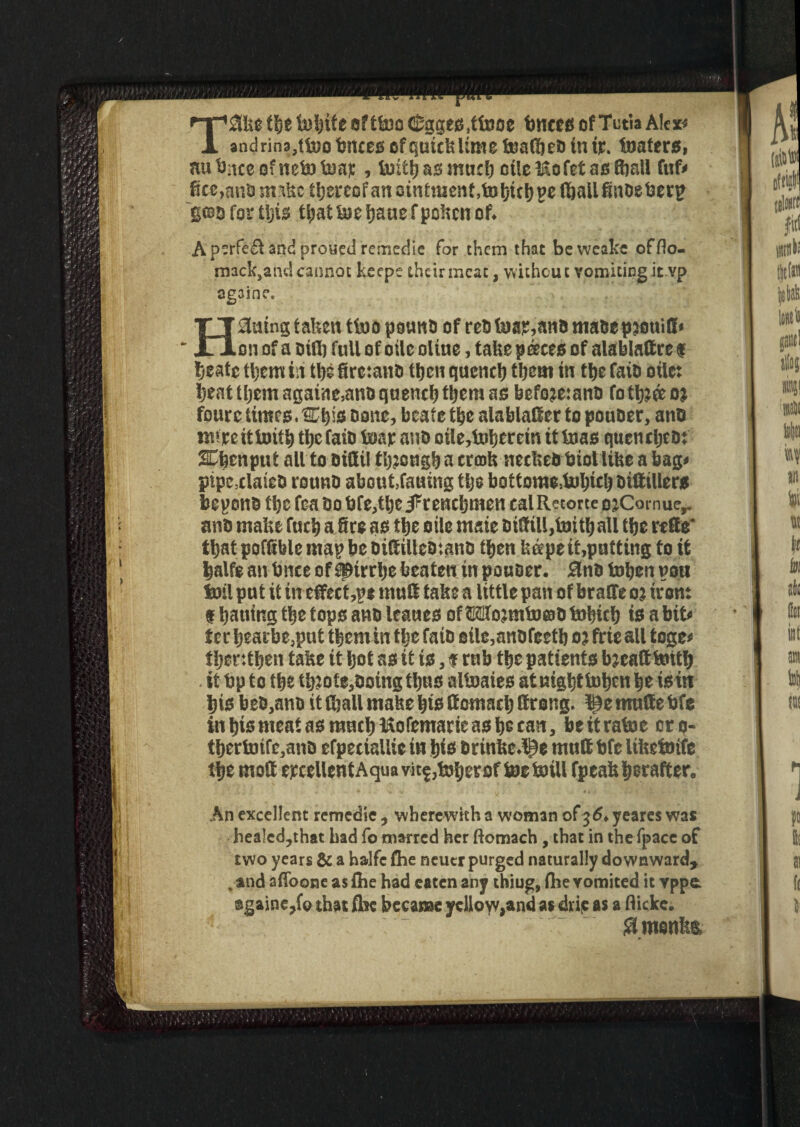 TAke the white of two Egges, twoe vnces of Tutia Alex-
andrina, two vnces of quick lime washed in ix. waters,
an vnce of new wax, with as much oile Rofet as shall suf-
fice, and make thereof an ointment, which ye shall finde verp
good for this that we haue spoken of.
A perfect and proued remedie for them that be weake of sto-
mack, and cannot keepe their meat, without vomiting it vp
againe.
HAuing taken two pound of red wax, and made prouisi-
on of a dish full of oile oliue, take peeces of alablastre &
heate them in the fire: and then quench them in the said oile:
heat them againe, and quench them as before: and so three or
foure times. This done, beate the alablaster to pouder, and
mixe it with the said wax and oile, wherein it was quenched:
Then put all to distil through a crook necked viol like a bag-
pipe, claied round about, sauing the bottome, which distillers
beyond the sea do vse, the Frenchmen cal Retorte or Cornue,
and make such a fire as the oile maie distill, with all the reste
that possible may be distilled: and then keepe it, putting to it
halfe an vnce of Mirrhe beaten in pouder. And when you
wil put it in effect, ye must take a little pan of brasse or iron:
& hauing the tops and leaues of Wormwood which is a bit-
ter hearbe, put them in the said oile, and seeth or frie all toge-
ther: then take it hot as it is, & rub the patients breast with
it vp to the throte, doing thus alwaies at night when he is in
his bed, and it shall make his stomach strong. He muste vse
in his meat as much Rosemarie as he can, be it rawe or o-
therwise, and especiallie in his drinke. He must vse likewise
the most excellent Aqua vitę, wherof we will speak herafter.
An excellent remedie, wherewith a woman of 36. yeares was
healed, that had so marred her stomach, that in the space of
two years & a halfe she neuer purged naturally downward,
and assoone as she had eaten any thiug, she vomited it vppe
againe, so that she became yellow, and as drie as a sticke.
A monks